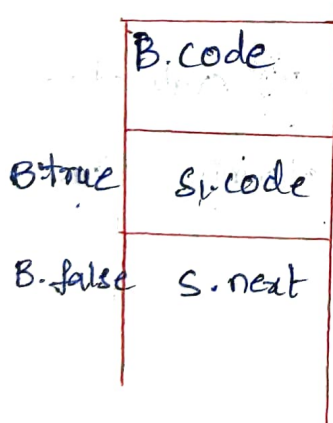 B.code
B.true S1.code
B.false S.next